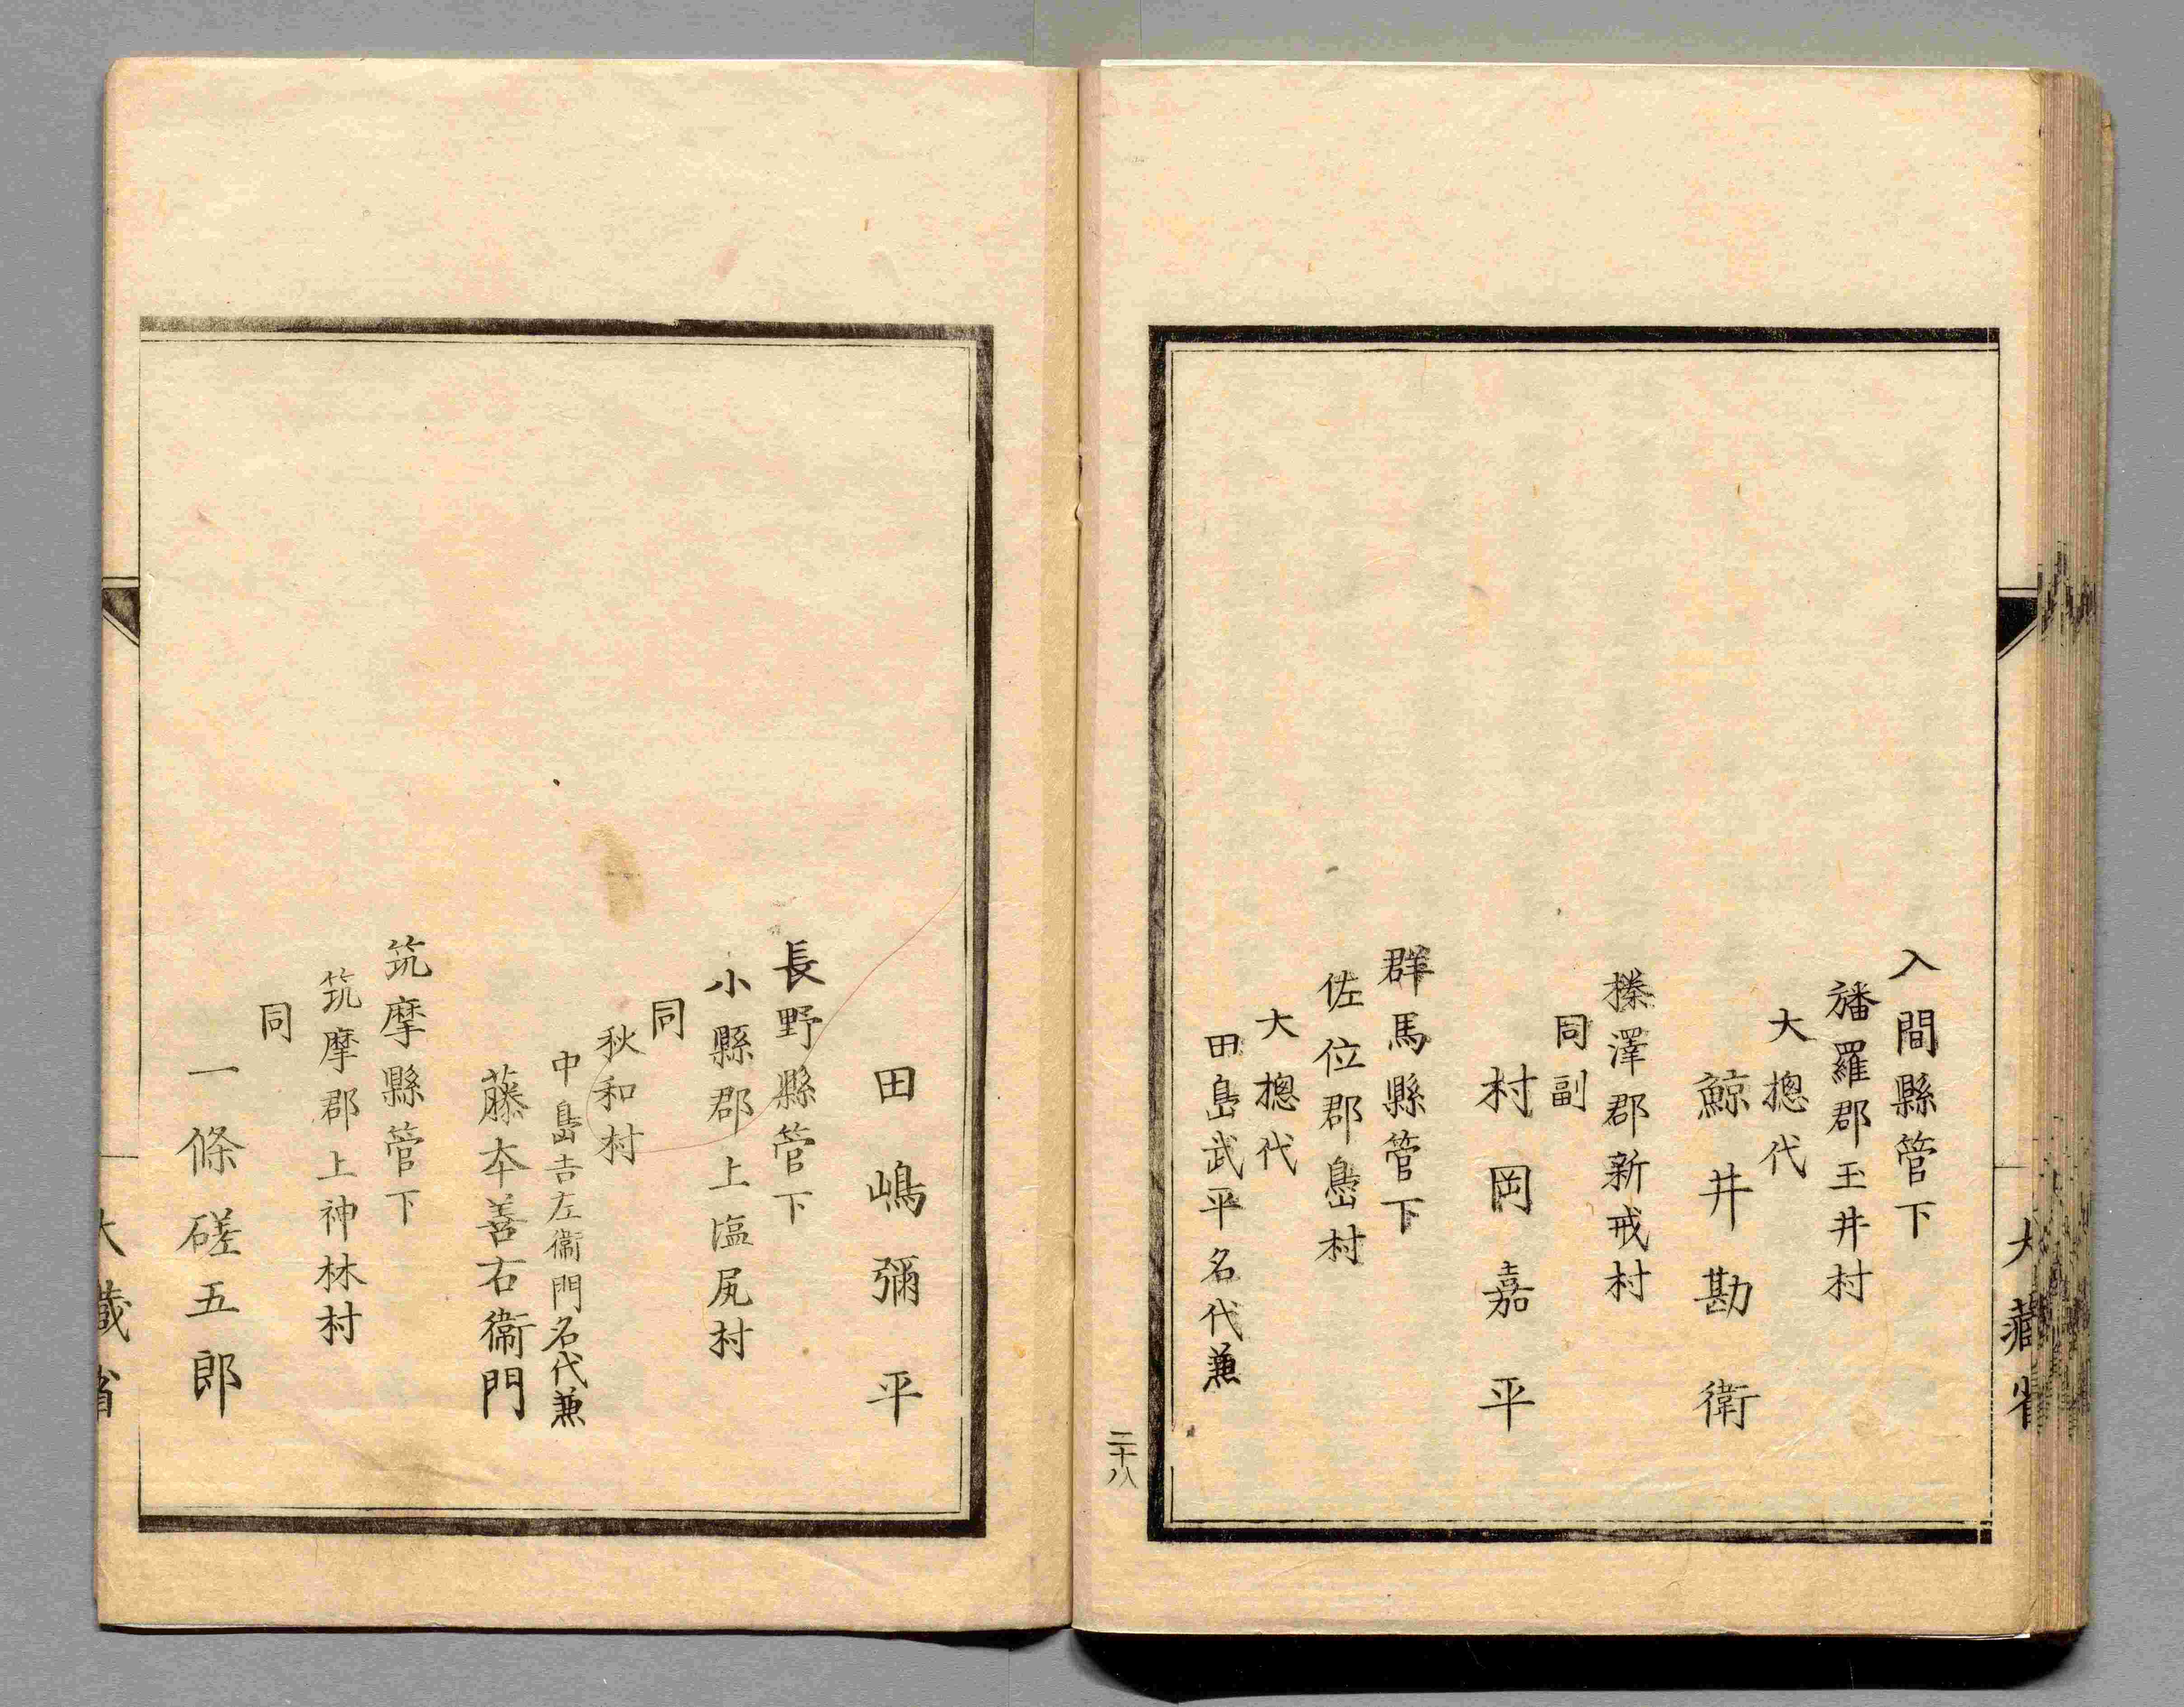 入間縣管下
旛羅郡玉井村
大摠代
鯨井勘衛
榛澤郡新戒村
同副
村岡嘉平
群馬縣管下
佐位郡嶌村
大摠代
田島武平名代兼
二十八
大藏省
田嶋彌平
長野縣管下
小縣郡上塩尻村
同
秋和村
中島吉左衞門名代兼
藤本善右衞門
筑摩縣管下
筑摩郡上神林村
同
一條磋五郎
大藏省